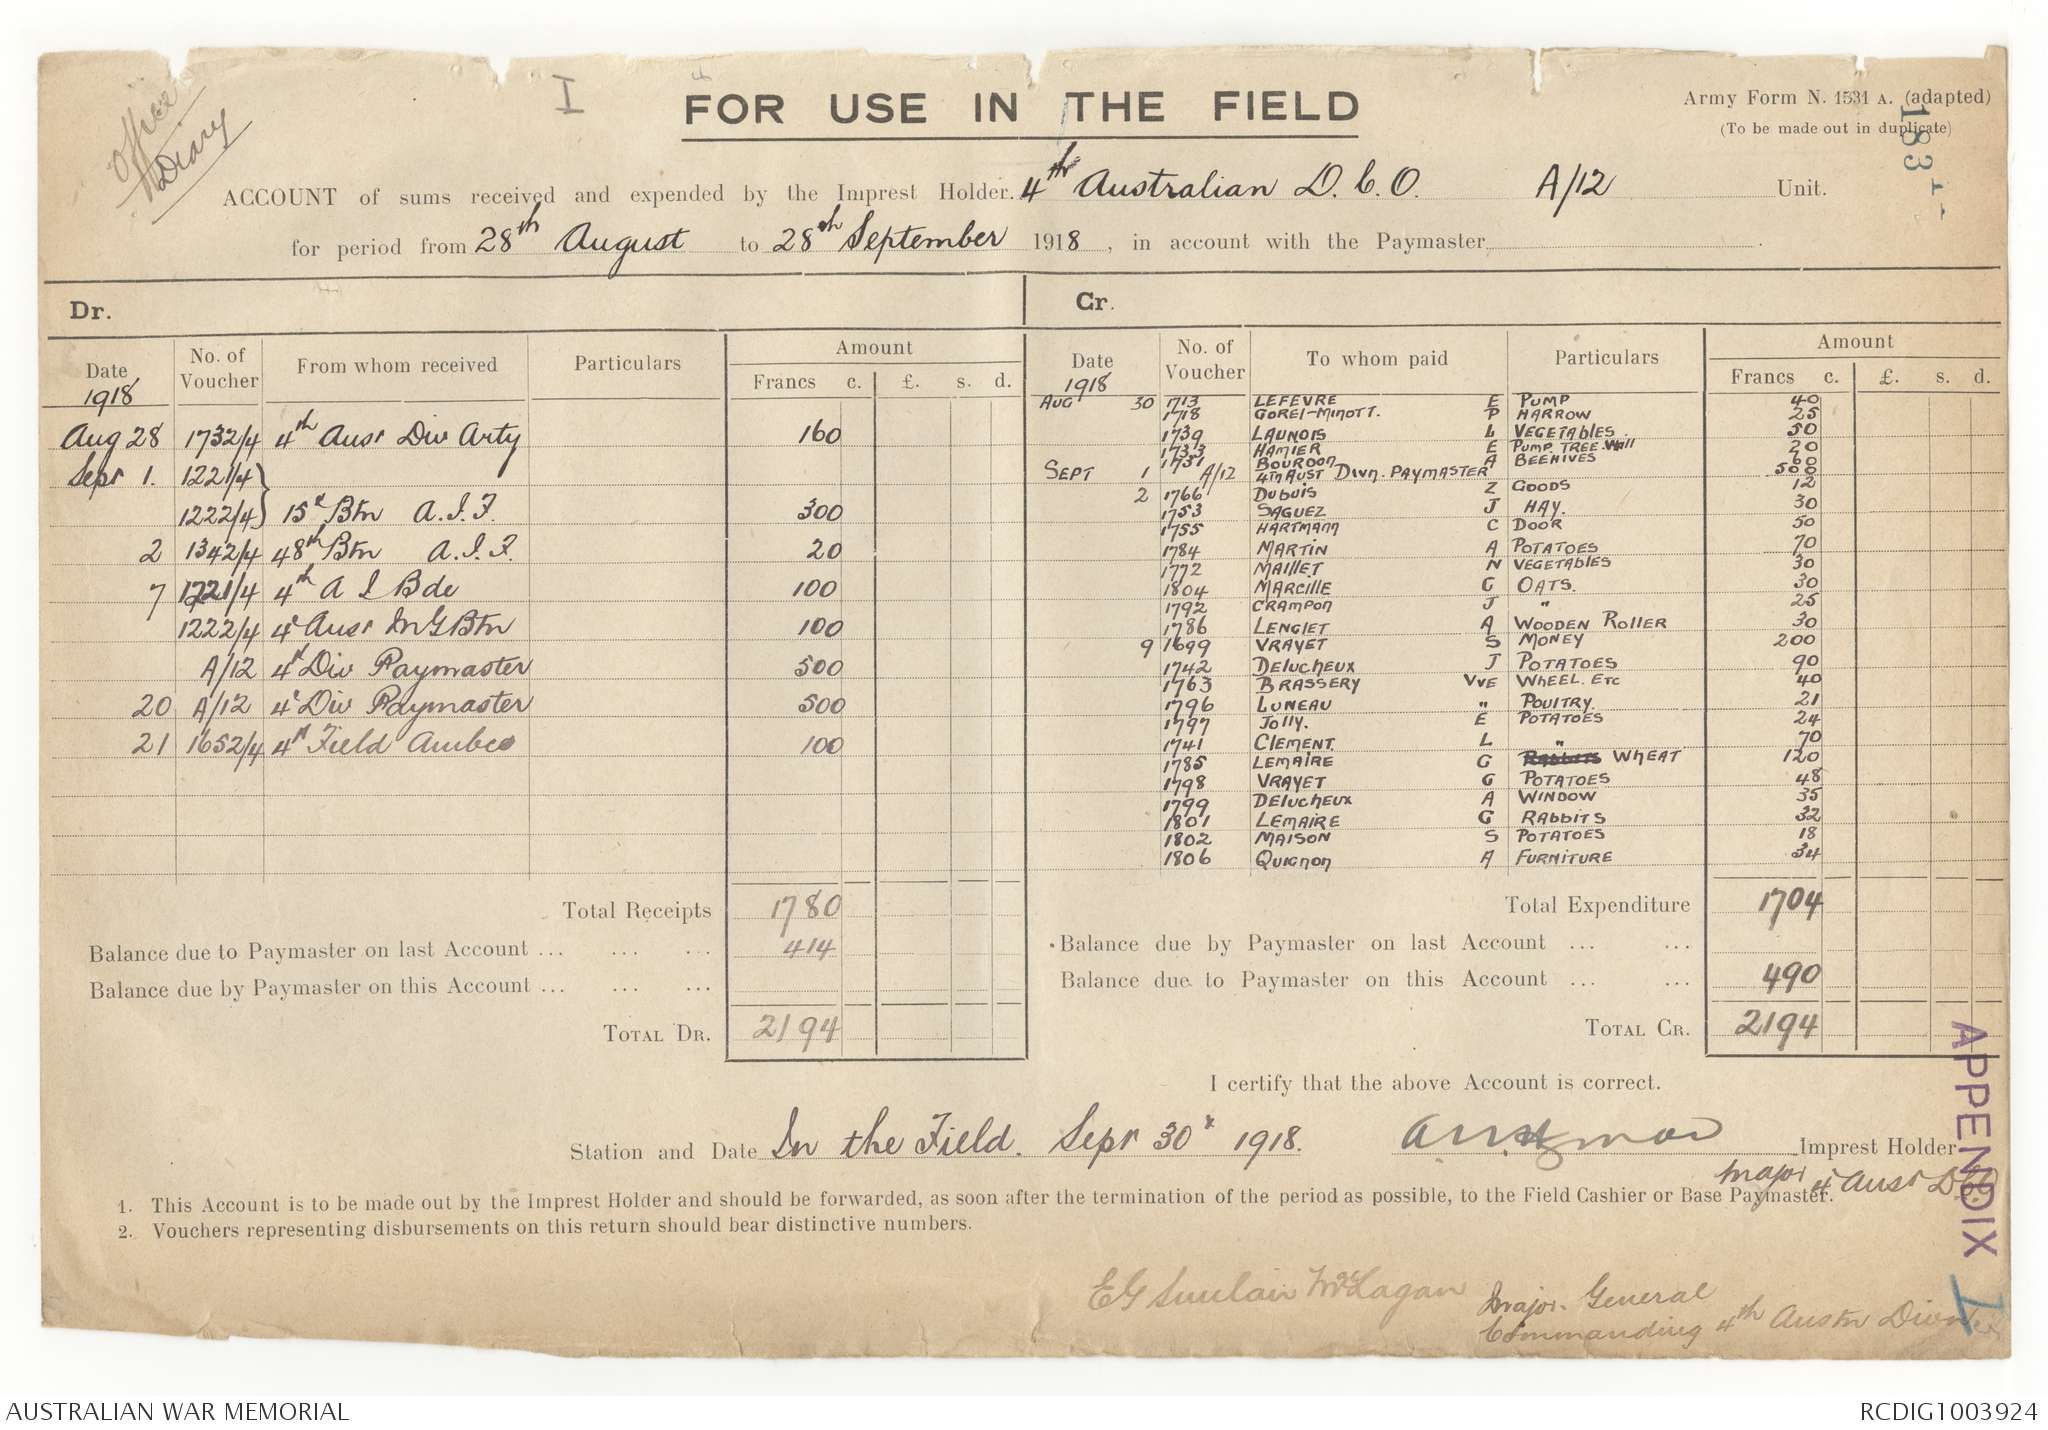 Office
Diary
I
FOR USE IN THE FIELD
Army Form N. 1531 A. (adapted)
(To be made out in duplicate)
183
ACCOUNT of sums received and expended by the Imprest Holder. 4th Australian D.C.O. A/12 Unit.
for period from 28th August to 28th September 1918, in account with the Paymaster
Dr.
Date 1918 No. of Voucher From whom received Particulars Amount
Francs c. £. s. d.
Aug 28 1732/4 4th Aust Div Arty 160
Sept 1. 1221/4 }
1222/4 } 15th Btn A.I.F. 300
2 1342/4 48th Btn A.I.F. 20
7 1721/4 4th A I Bde 100
1222/4 4th Aust M G Btn 100
A/12 4th Div Paymaster 500
20 A/12 4th Div Paymaster 500
21 1652/4 4th Field Ambce 100
Total Receipts 1780
Balance due to Paymaster on last Account ... ... ... 414
Balance due by Paymaster on this Account ... ... ...
TOTAL DR. 2194
Cr.
Date 1918 No. of Voucher To whom paid Particulars Amount
Francs c. £. s. d.
AUG 30 1713 LEFEVRE E PUMP 40
1718 GOREL-MINOTT. P HARROW 25
1739 LAUNOIS L VEGETABLES 50
1733 HAMIER E PUMP. TREE. Wall 20
1751 BOURDON A BEEHIVES 60
SEPT 1 A/12 4TH AUST DIVN. PAYMASTER 500
2 1766 DUBUIS Z GOODS 12
1753 SAGUEZ J HAY. 30
1755 HARTMANN C DOOR 50
1784 MARTIN A POTATOES 70
1772 MAILLET N VEGETABLES 30
1804 MARCILLE G OATS. 30
1792 CRAMPON J " 25
1786 LENGLET A WOODEN ROLLER 30
9 1699 VRAYET S MONEY 200
1742 DELUCHEUX J POTATOES 90
1763 BRASSERY VVE WHEEL. ETC 40
1796 LUNEAU " POULTRY. 21
1797 JOLLY. E POTATOES 24
1741 CLEMENT L " 70
1785 LEMAIRE G RABBITS WHEAT 120
1798 VRAYET G POTATOES 48
1799 DELUCHEUX A WINDOW 35
1801 LEMAIRE G RABBITS 32
1802 MAISON S POTATOES 18
1806 QUIGNON A FURNITURE 34
Total Expenditure 1704
Balance due by Paymaster on last Account ... ...
Balance due to Paymaster on this Account ... ... 490
TOTAL CR. 2194
I certify that the above Account is correct.
Station and Date In the Field. Sept 30th 1918. Imprest Holder
Major 4th Aust D
1. This Account is to be made out by the Imprest Holder and should be forwarded, as soon after the termination of the period as possible, to the Field Cashier or Base Paymaster.
2. Vouchers representing disbursements on this return should bear distinctive numbers.
APPENDIX
E G Sinclair McLagan Major-General
Commanding 4th Austn Divn
AUSTRALIAN WAR MEMORIAL
RCDIG1003924